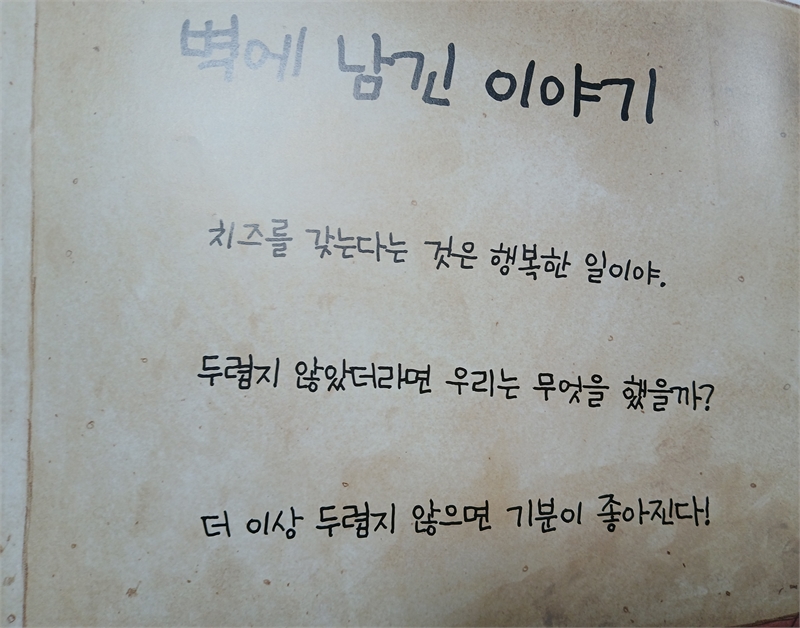 벽에 남긴 이야기
치즈를 갖는다는 것은 행복한 일이야.
두렵지 않았더라면 우리는 무엇을 했을까?
더 이상 두렵지 않으면 기분이 좋아진다!